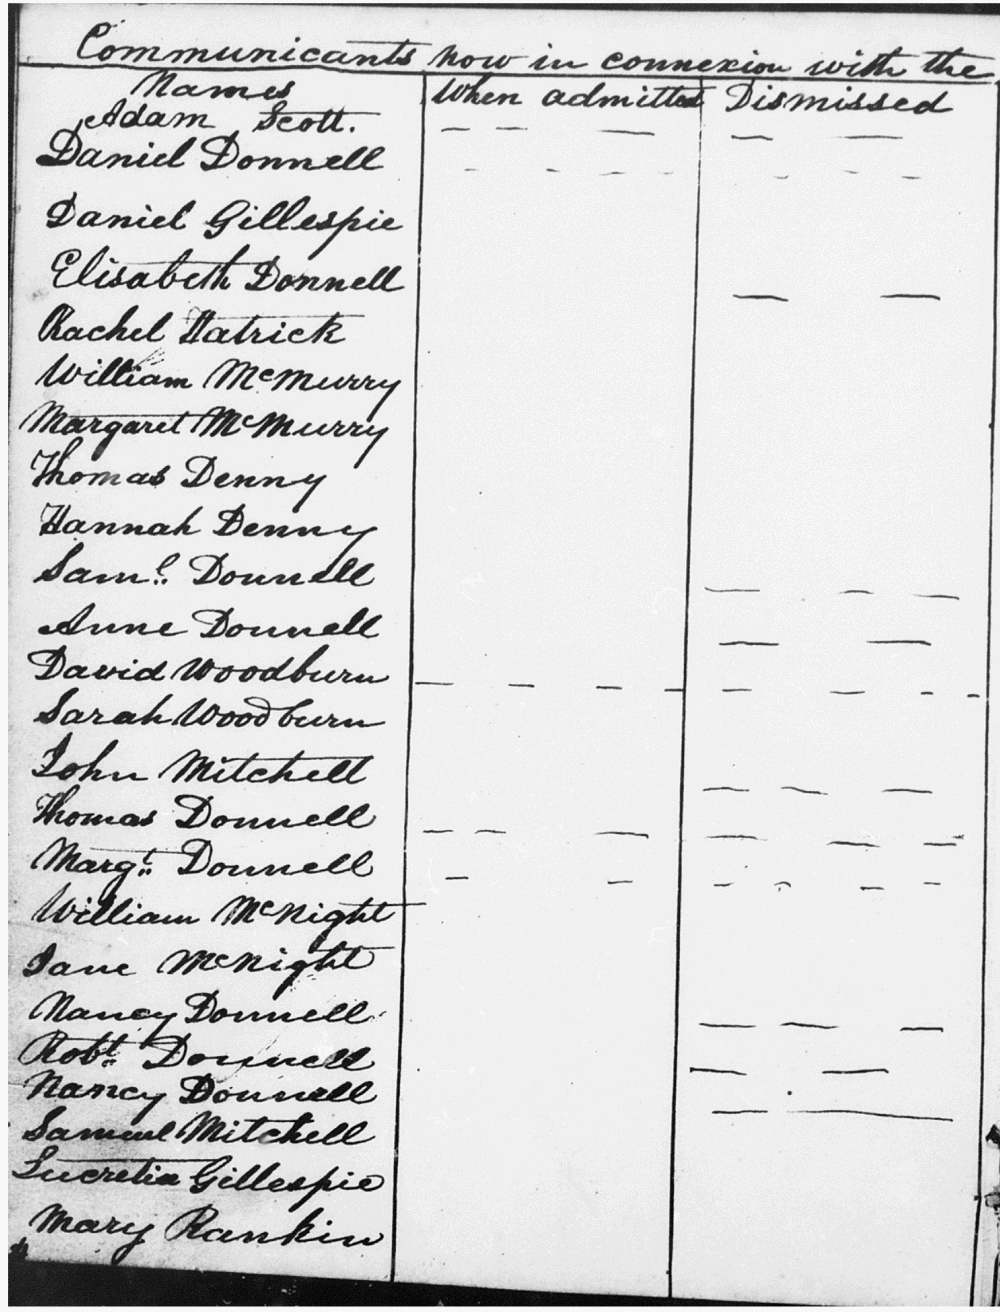 Communicants now in connexion with the
Names When admitted Dismissed
Adam Scott. — — — — —
Daniel Donnell - - - - - - - - -
Daniel Gillespie
Elisabeth Donnell — —
Rachel Hatrick
William McMurry
Margaret McMurry
Thomas Denny
Hannah Denny
Saml. Donnell — — —
Anne Donnell — —
David Woodburn — — — — — — - -
Sarah Woodburn
John Mitchell — — —
Thomas Donnell — — — — — —
Margt. Donnell — — - - - -
William McNight
Jane McNight
Nancy Donnell — — —
Robt. Donnell — —
Nancy Donnell — —
Samuel Mitchell
Lucretia Gillespie
Mary Rankin